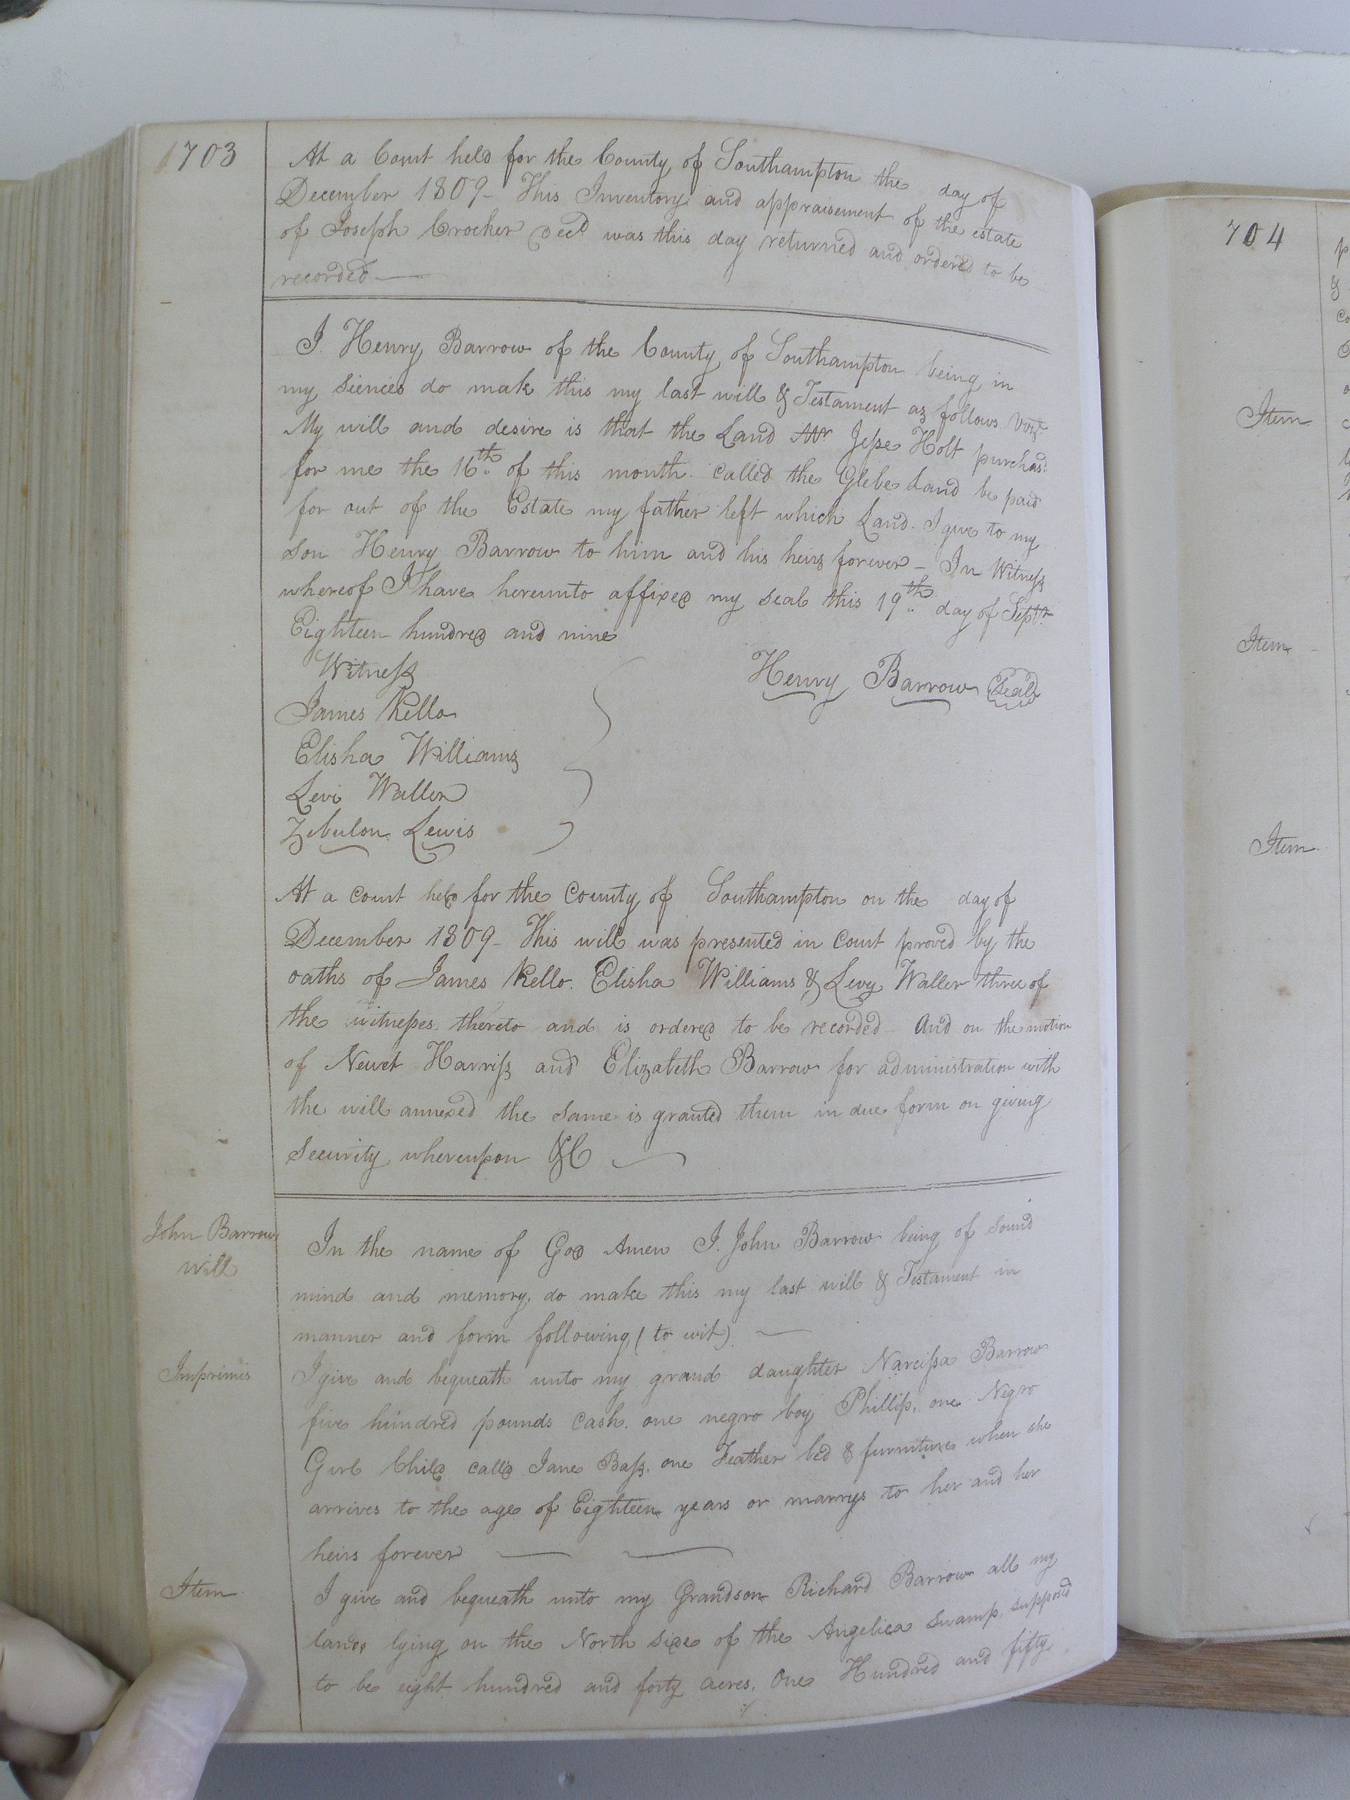 703
At a Court held for the County of Southampton the day of
December 1809 - This Inventory and appraisement of the estate
of Joseph Crocker Decd was this day returned and ordered to be
recorded
I Henry Barrow of the County of Southampton being in
my siences do make this my last will & Testament as follows Vizt
My will and desire is that the Land Mr Jesse Holt purchasd
for me the 16th of this month called the Glebe Land be paid
for out of the Estate my father left which Land I give to my
son Henry Barrow to him and his heirs forever - In Witness
whereof I have hereunto affixed my seal this 19th day of Septr
Eighteen hundred and nine
Witness
Henry Barrow Seal
James Kello
Elisha Williams
Levi Waller
Zebulon Lewis
At a court held for the County of Southampton on the day of
December 1809 - This will was presented in Court proved by the
oaths of James Kello. Elisha Williams & Levy Waller three of
the witnesses thereto and is ordered to be recorded And on the motion
of Newet Harriss and Elizabeth Barrow for administration with
the will annexed the same is granted them in due form on giving
security whereupon &C
John Barrow
will
In the name of God Amen I. John Barrow being of sound
mind and memory, do make this my last will & Testament in
manner and form following (to wit)
Imprimis
I give and bequeath unto my grand daughter Narcissa Barrow
five hundred pounds cash. one negro boy Phillip, one Negro
Girl Child calld Jane Bass. one Feather bed & furniture when she
arrives to the age of Eighteen years or marrys to her and her
heirs forever
Item
I give and bequeath unto my Grandson Richard Barrow all my
lands lying on the North side of the Angelica swamp supposed
to be eight hundred and forty acres, One Hundred and fifty
704
Item
Item
Item